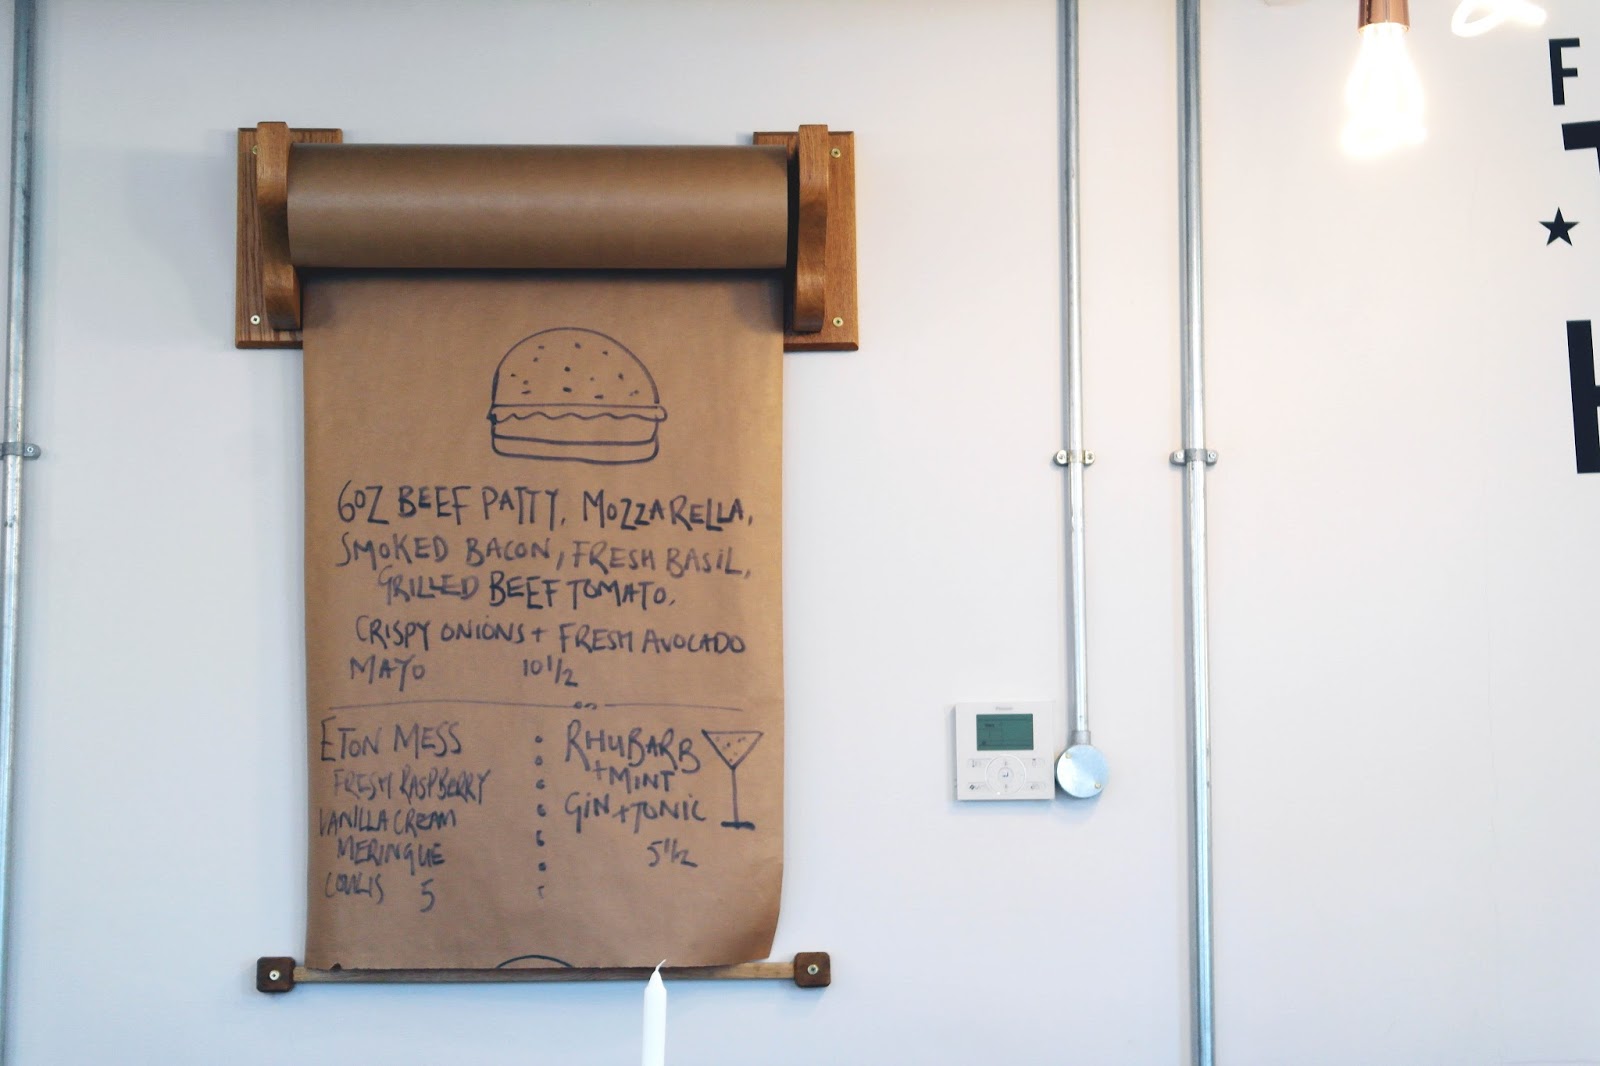 6OZ BEEF PATTY, MOZZARELLA,
SMOKED BACON, FRESH BASIL,
GRILLED BEEF TOMATO,
CRISPY ONIONS + FRESH AVOCADO
MAYO 10 1/2
ETON MESS
FRESH RASPBERRY
VANILLA CREAM
MERINGUE
COULIS 5
RHUBARB
+ MINT
GIN + TONIC
5 1/2
F
T
★